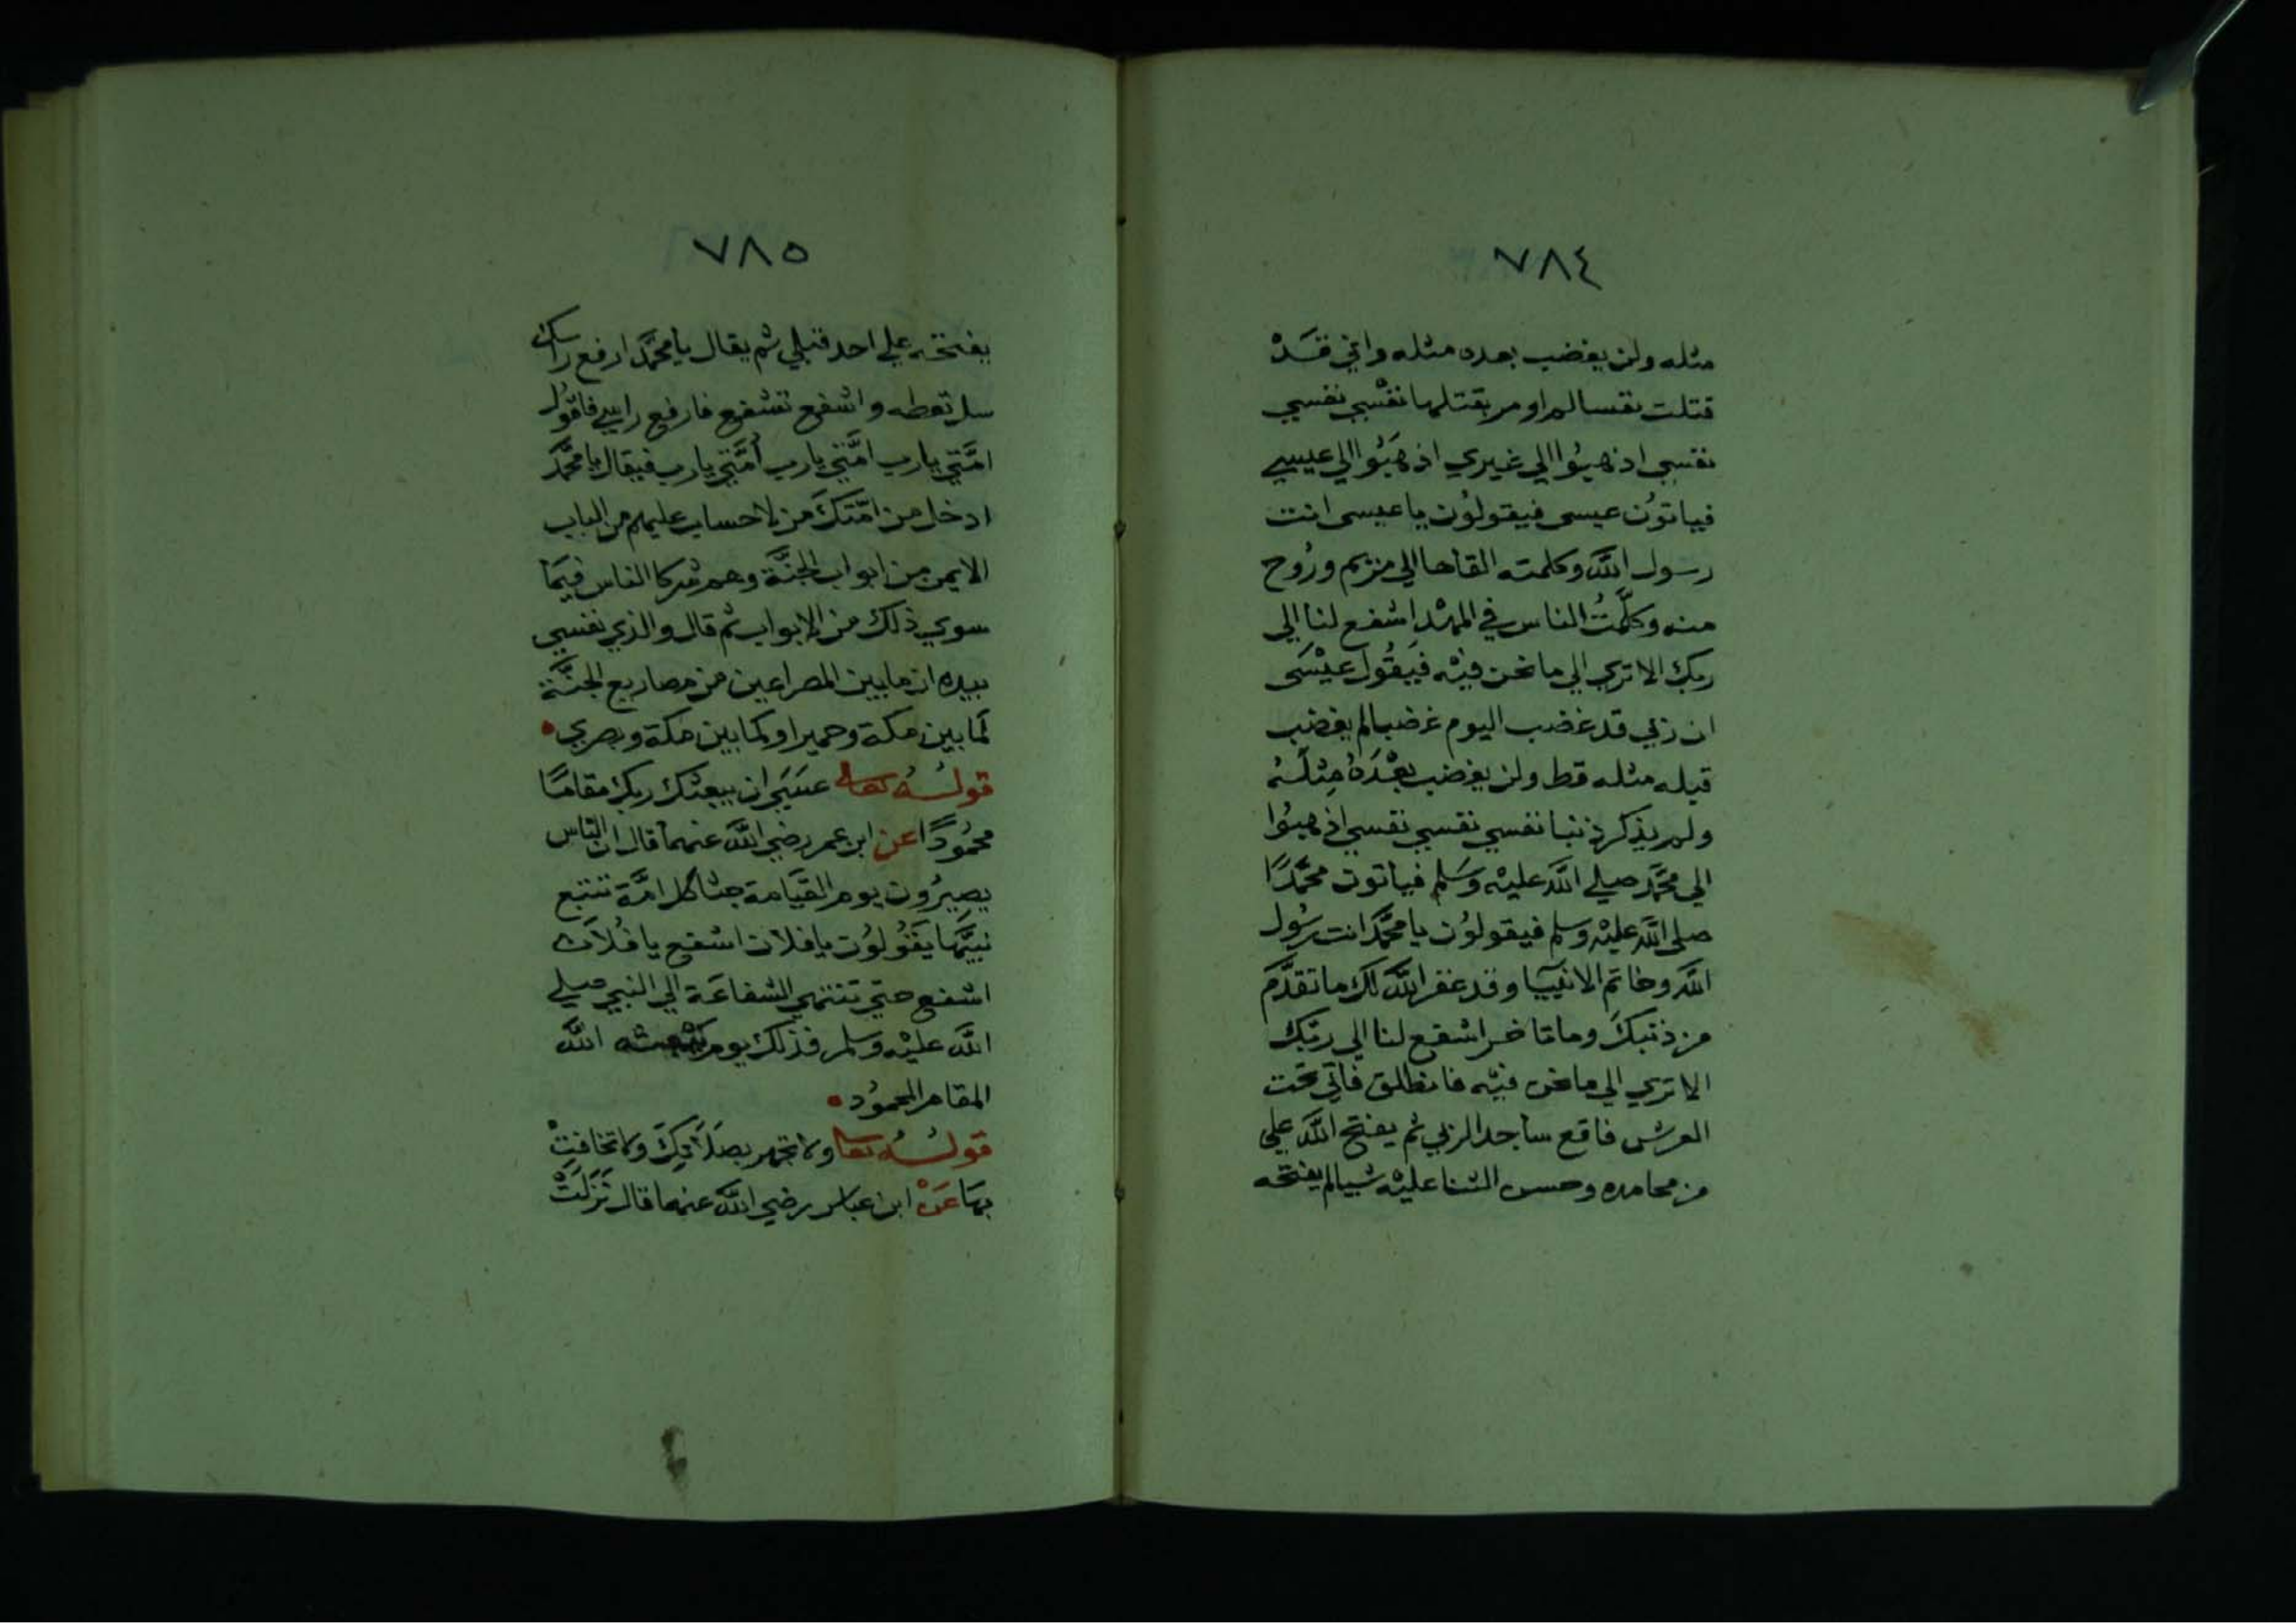 ٧٨٤
مثله ولن يغضب بعده مثله واني قَدْ
قتلت نفسا لم اومر بقتلها نفْسِي نفسي
نفسي اذهبُوا الي غيري اذهَبُوا الي عيسي
فياتوُن عيسى فيقولوُن يا عيسى انت
رسول اللَّه وكلمته القاها الي مريم ورُوح
منه وكلَّمتُ الناس في المهْد اشفع لنا الي
ربك الا تري الي ما نحن فيْه فَيقُول عيْسَى
ان ربي قد غضب اليوم غضبا لم يغضب
قبله مثله قط ولن يغضب بعْدَهُ مِثْلَهُ
ولم يذكر ذنبا نفسي نفسي نفسي اذهبُوا
الي محمَّد صلي اللَّه عليْه وَسَلم فياتون محمَّدًا
صلي اللَّه عليْه وسلم فيقولوُن يا محمَّد انت رسُول
اللَّه وخاتم الانبيآ وقد غفر اللَّه لك ما تقدَّم
من ذنبكَ وما تاخر اشفع لنا الي ربّك
الا تري الي ما نحن فيْه فانطلق فآتي تحت
العرش فاقع ساجدا لربي ثم يفتح اللَّه علي
من محامده وحسن الثنا عليْه شيا لم يفتحه
٧٨٥
يفتحه علي احد قبلي ثم يقال يا محمَّد ارفع راسك
سل تعطه واشفع تشفع فارفع راسي فاقوُل
امَّتي يارب امَّتي يارب اُمَّتي يارب فيقال يا محمَّد
ادخل من امَّتكَ من لا حساب عليهم من الباب
الايمن من ابواب الجنَّة وهم شركا الناس فيمَا
سوي ذلك من الابواب ثم قال والذي نفسي
بيده ان ما بين المصراعين من مصاريع الجنَّة
كمَا بين مكة وحمير او كما بين مكة وبصري
قولُهُ تعالى عسَيَ ان يبعثك ربك مقامًا
محمُودًا عن ابن عمر رضي اللَّه عنهما قال ان النَّاس
يصيرُون يوم القيَامة جثا كل امَّة تتبع
نبيَّها يَقُولوُن يا فلان اشفع يا فُلاَن
اشفع حتي تنتهي الشفاعَة الي النبي صلي
اللَّه عليْه وسلم فذلك يوم يبْعثه اللَّه
المقام المحموُد
قولُهُ تعا ولا تجهر بصَلاَتِكَ ولا تخافِتْ
بهَا عَنْ ابن عباس رضي اللَّه عنهما قال نَزَلَتْ